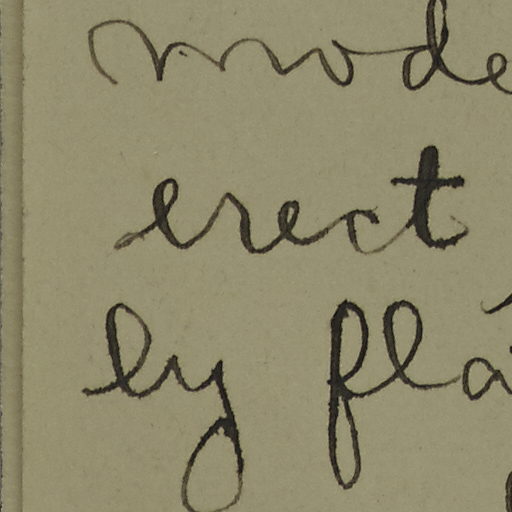 mode
erect
ly fla